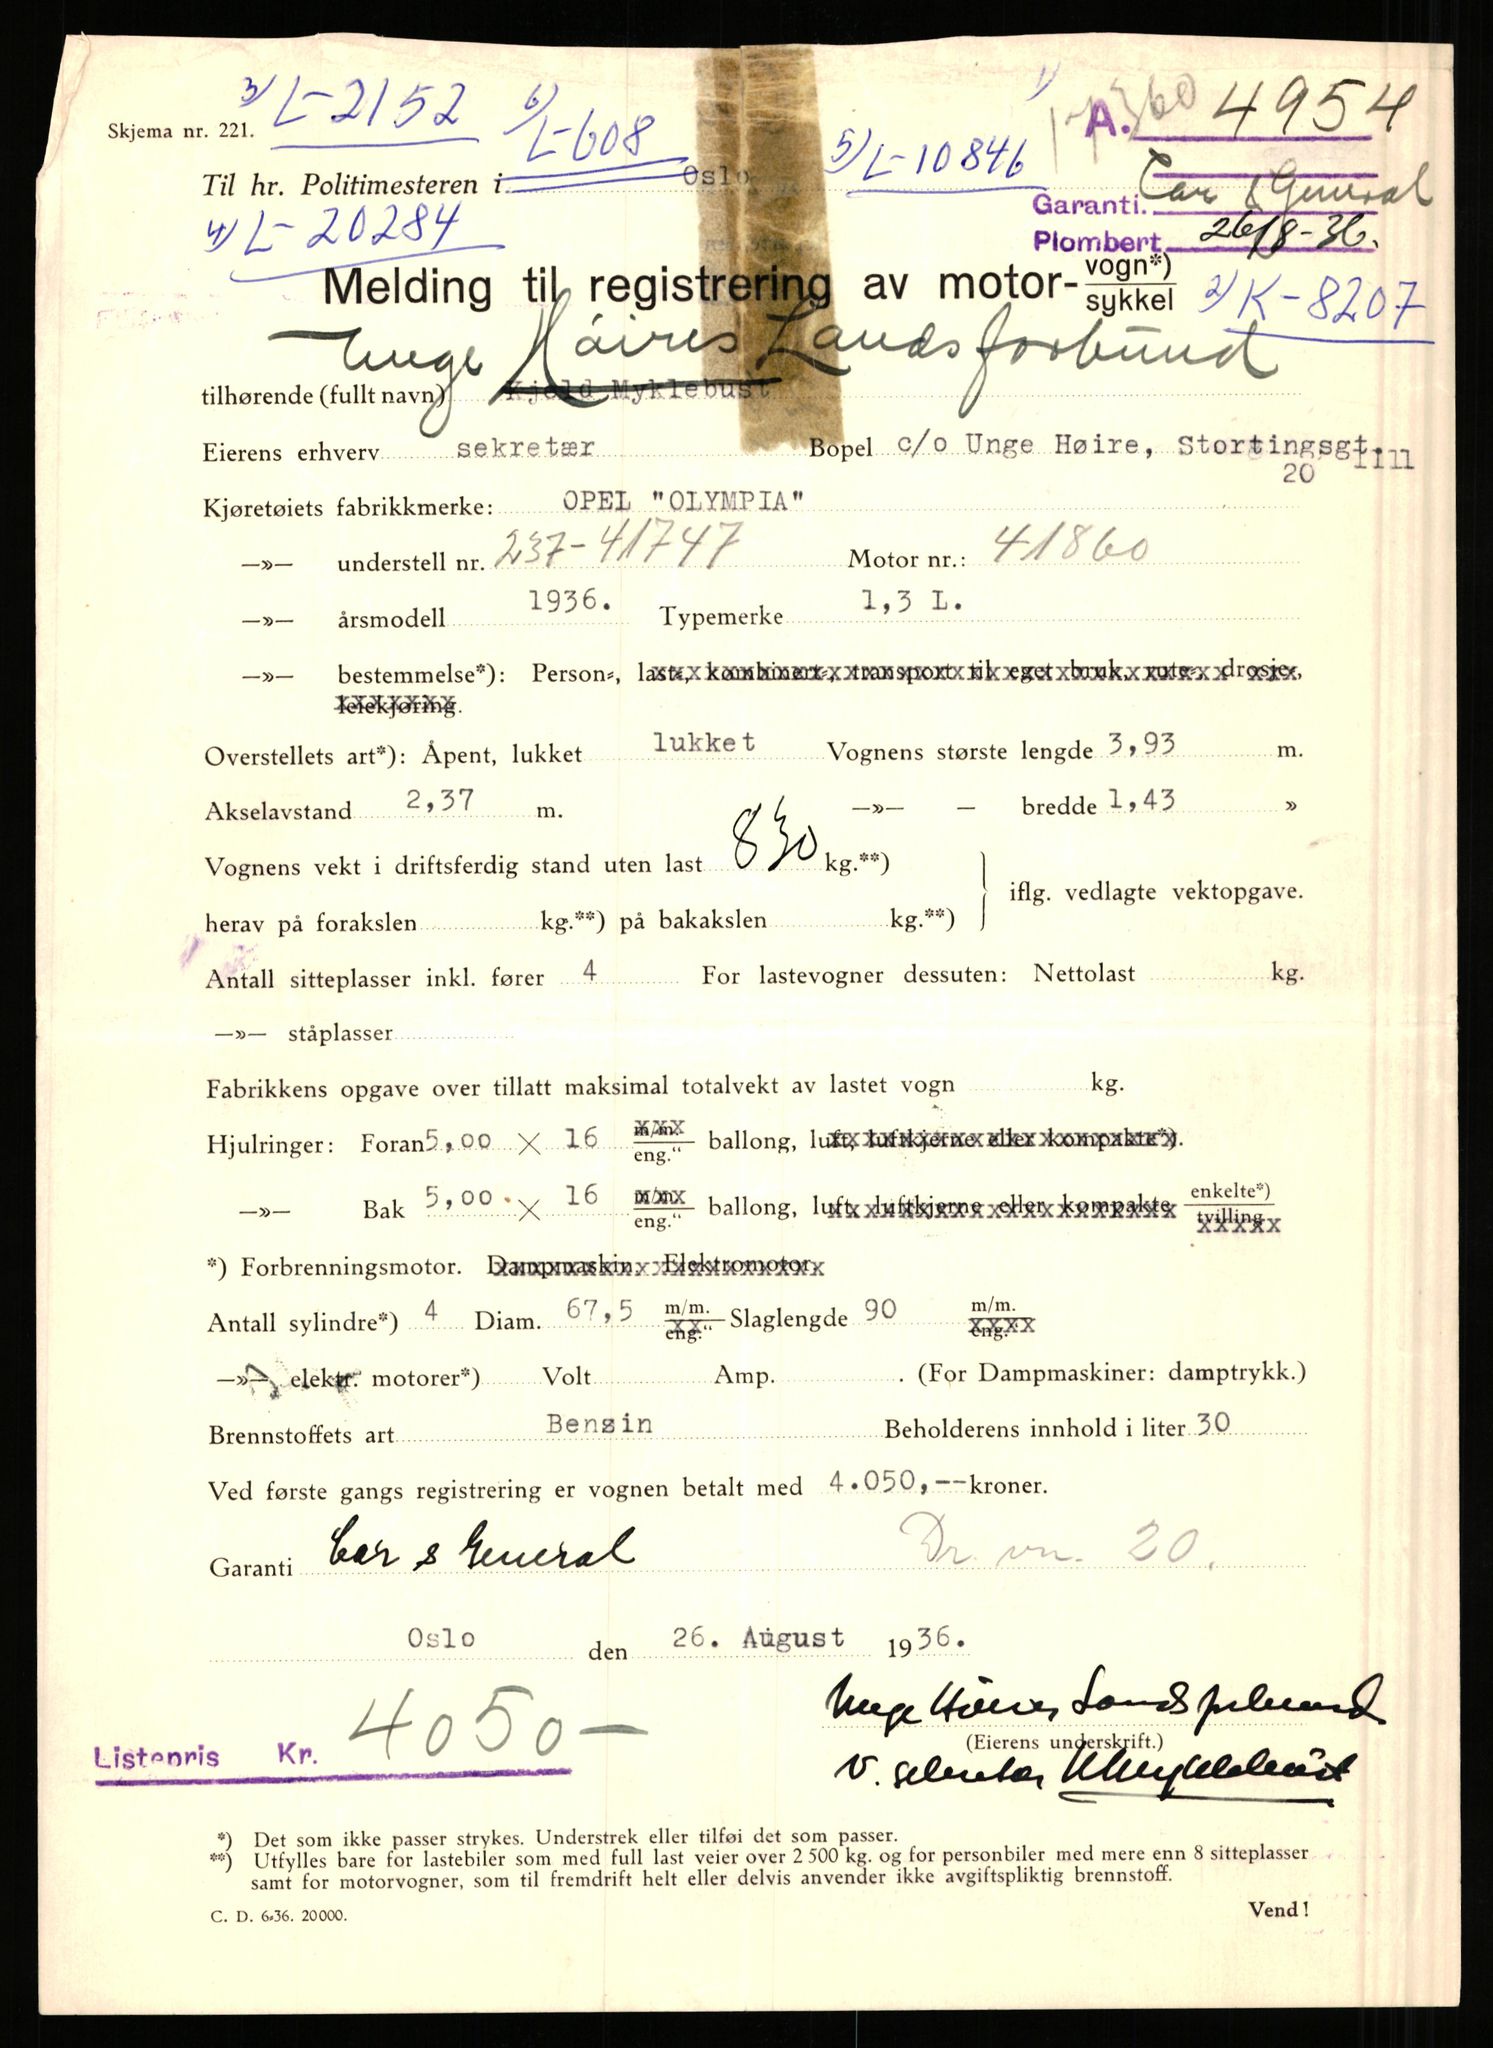 3) L-2152 6) L-608 1) A. 4954
17360
Skjema nr. 221.
5) L-10846
Til hr. Politimesteren i Oslo
Car & General
Garanti.
4) L-20284
Plombert 26/8-36.
Melding til registrering av motor- vogn*) / sykkel
2) K-8207
Unge Höires Landsforbund
tilhørende (fullt navn) Kjeld Myklebust
Eierens erhverv sekretær Bopel c/o Unge Høire, Stortingsgt.
20 IIII
Kjøretøiets fabrikkmerke: OPEL "OLYMPIA"
—»— understell nr. 237-41747 Motor nr.: 41860
—»— årsmodell 1936. Typemerke 1,3 L.
—»— bestemmelse*): Person-, last-, kombinert-, transport til eget bruk, rute-, drosje-,
leiekjøring.
Overstellets art*): Åpent, lukket lukket Vognens største lengde 3,93 m.
Akselavstand 2,37 m. —»— — bredde 1,43 »
Vognens vekt i driftsferdig stand uten last 830 kg.**)
iflg. vedlagte vektopgave.
herav på forakslen kg.**) på bakakslen kg.**)
Antall sitteplasser inkl. fører 4 For lastevogner dessuten: Nettolast kg.
—»— ståplasser
Fabrikkens opgave over tillatt maksimal totalvekt av lastet vogn kg.
Hjulringer: Foran 5,00 × 16 m/m. / eng." ballong, luft, luftkjerne eller kompakte*).
—»— Bak 5,00 × 16 m/m. / eng." ballong, luft, luftkjerne eller kompakte enkelte*) / tvilling
*) Forbrenningsmotor. Dampmaskin. Elektromotor.
Antall sylindre*) 4 Diam. 67,5 m/m. / eng." Slaglengde 90 m/m. / eng."
—»— elektr. motorer*) Volt Amp. . (For Dampmaskiner: damptrykk.)
Brennstoffets art Bensin Beholderens innhold i liter 30
Ved første gangs registrering er vognen betalt med 4.050,-- kroner.
Garanti Car & General Dr. vn. 20.
Oslo den 26. August 1936.
Unge Höires Landsforbund
(Eierens underskrift.)
Listepris Kr. 4050-
v. sekretær KMyklebust
*) Det som ikke passer strykes. Understrek eller tilføi det som passer.
**) Utfylles bare for lastebiler som med full last veier over 2 500 kg. og for personbiler med mere enn 8 sitteplasser
samt for motorvogner, som til fremdrift helt eller delvis anvender ikke avgiftspliktig brennstoff.
C. D. 6-36. 20000. Vend!